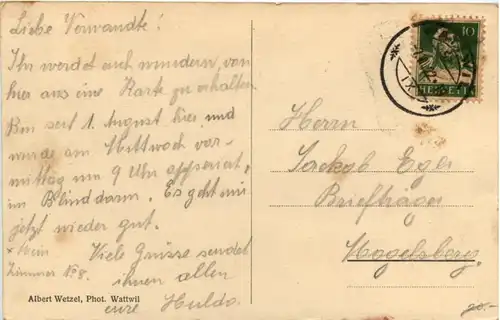 Liebe Verwandte!
Ihr werdet euch wundern, von
hier aus eine Karte zu erhalten.
Bin seit 1. August hier und
wurde am Mittwoch vor-
mittag um 9 Uhr opperiert,
im Blinddarm. Es geht mir
jetzt wieder gut.
* Mein Viele Grüsse sendet
Zimmer No 8. ihnen allen
eure Hulda.
Albert Wetzel, Phot. Wattwil
10
HELVETIA
Herrn
Jackob Egli
Briefträger
Mogelsberg.